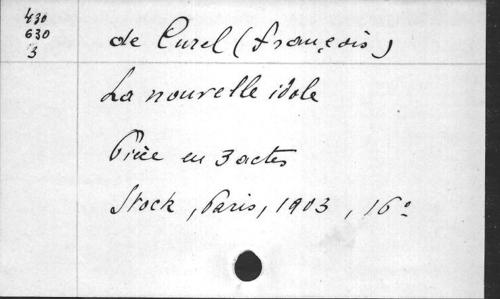 430
630
3
de Curel (françois)
La nouvelle idole
Pièce en 3 actes
Stock, Paris, 1903, 16°